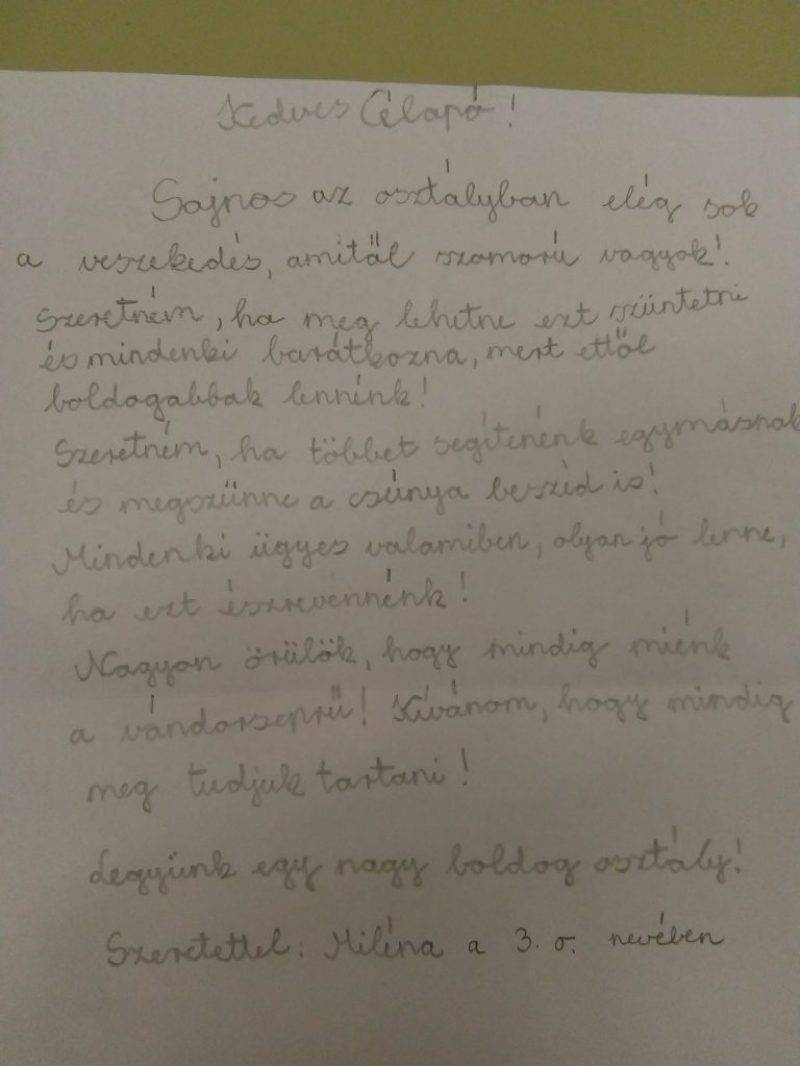 Kedves Télapó!
Sajnos az osztályban elég sok
a veszekedés, amitől szomorú vagyok!
Szeretném, ha meg lehetne ezt szüntetni
és mindenki barátkozna, mert ettől
boldogabbak lennénk!
Szeretném, ha többet segítenénk egymásnak
és megszünne a csúnya beszéd is!
Mindenki ügyes valamiben, olyan jó lenne,
ha ezt észrevennénk!
Nagyon örülök, hogy mindig miénk
a vándorseprű! Kívánom, hogy mindig
meg tudjuk tartani!
Legyünk egy nagy boldog osztály!
Szeretettel: Miléna a 3. o. nevében